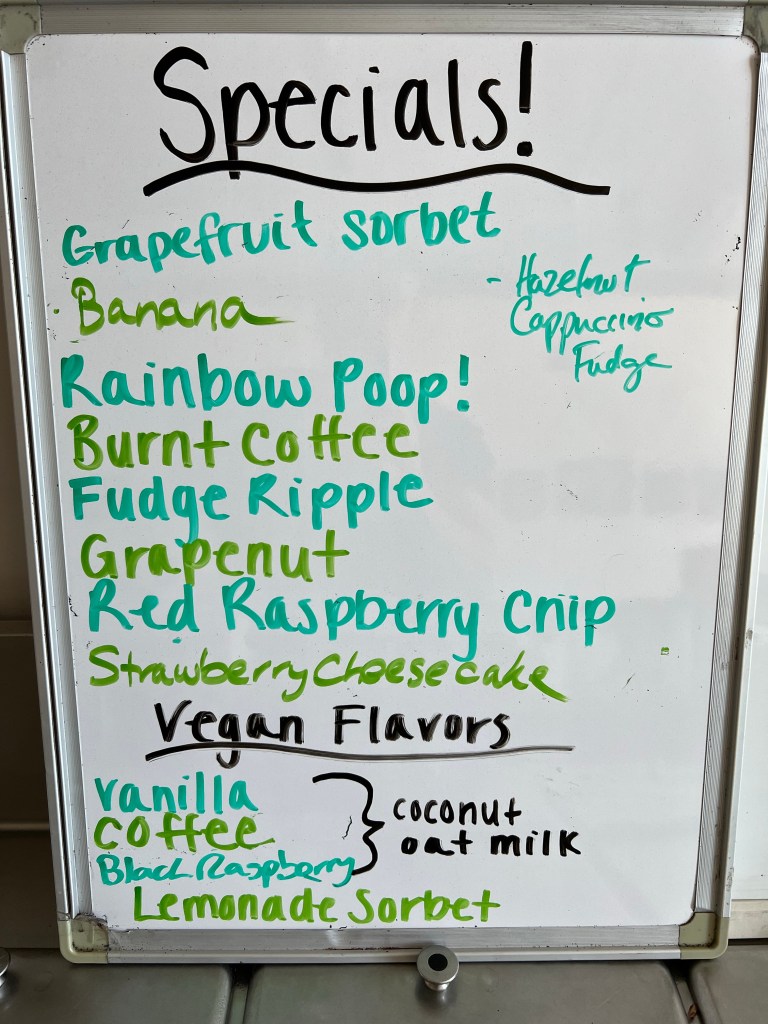 Specials!
Grapefruit sorbet
Banana
- Hazelnut
Cappuccino
Fudge
Rainbow Poop!
Burnt Coffee
Fudge Ripple
Grapenut
Red Raspberry Chip
Strawberry Cheesecake
Vegan Flavors
vanilla
coffee
Black Raspberry
} coconut
oat milk
Lemonade Sorbet